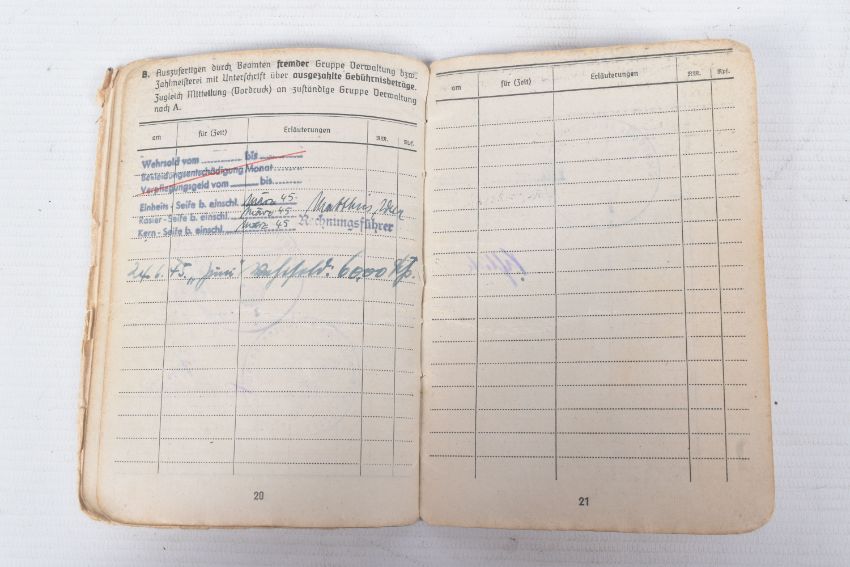 B. Auszufertigen durch Beamten fremder Gruppe Verwaltung bzw.
Zahlmeisterei mit Unterschrift über ausgezahlte Gebührnisbeträge.
Zugleich Mitteilung (Vordruck) an zuständige Gruppe Verwaltung
nach A.
am für (Zeit) Erläuterungen RM. Rpf.
Wehrsold vom ............ bis ............
Bekleidungsentschädigung Monat ........
Verpflegungsgeld vom ........ bis ........
Einheits - Seife b. einschl. März 45
Rasier - Seife b. einschl. März 45
Kern - Seife b. einschl. März 45 Rechnungsführer
"Juni" Wehrsold: 60,00
20
am für (Zeit) Erläuterungen RM. Rpf.
21